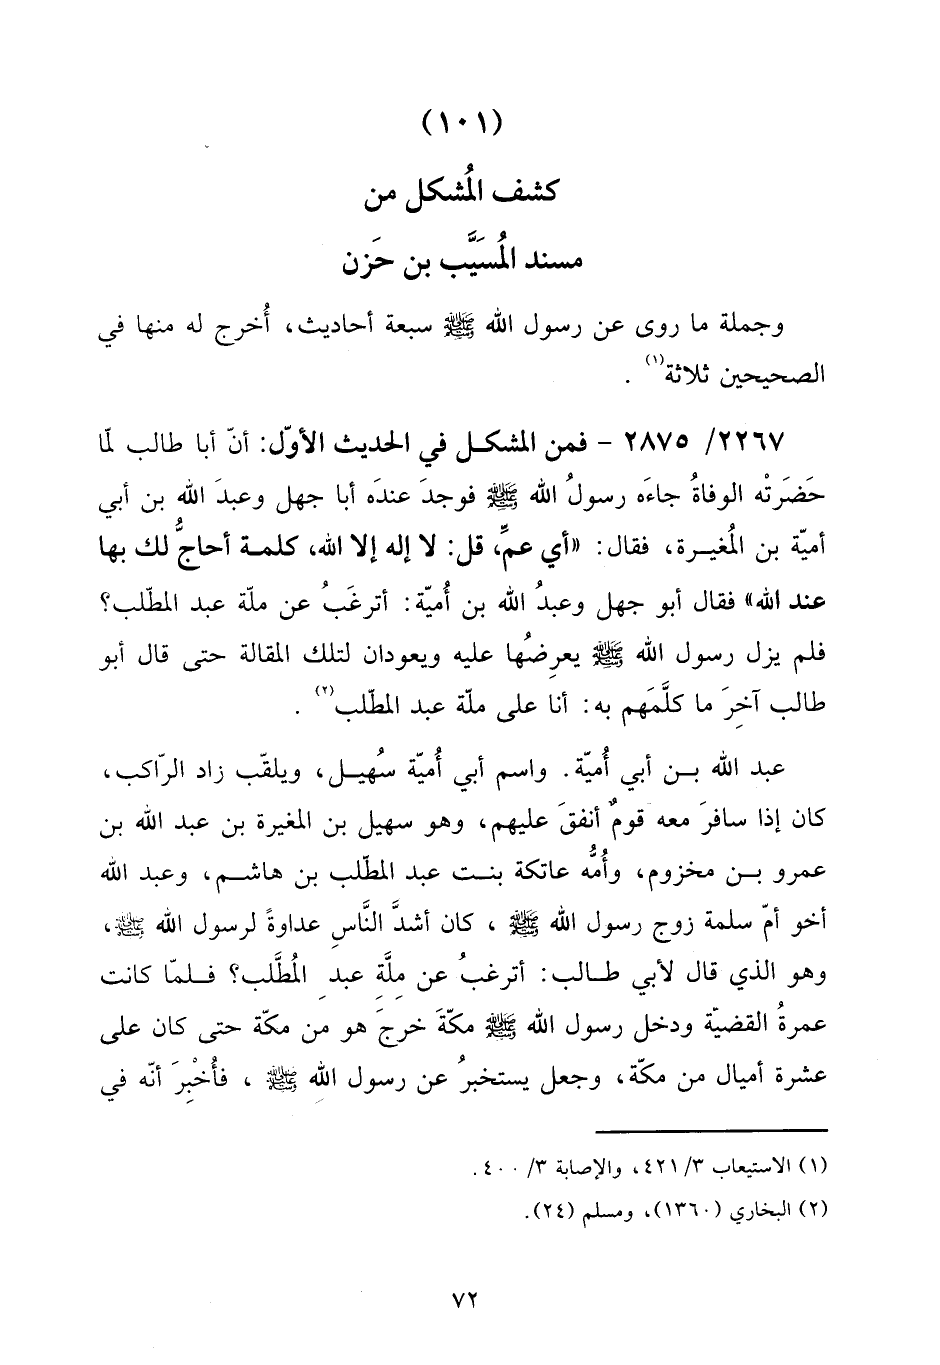 (١٠١)
كشف المُشكل من
مسند المُسَيَّب بن حَزن
وجملة ما روى عن رسول الله ﷺ سبعة أحاديث، أُخرج له منها في
الصحيحين ثلاثة(١) .
٢٢٦٧/ ٢٨٧٥ - فمن المشكل في الحديث الأوّل: أنّ أبا طالب لمّا
حَضَرَتْه الوفاةُ جاءَه رسولُ الله ﷺ فوجدَ عندَه أبا جهل وعبدَ الله بن أبي
أميّة بن المُغيرة، فقال: «أي عمِّ، قل: لا إله إلا الله، كلمة أحاجُّ لك بها
عند الله» فقال أبو جهل وعبدُ الله بن أُميّة: أترغَبُ عن ملّة عبد المطّلب؟
فلم يزل رسول الله ﷺ يعرِضُها عليه ويعودان لتلك المقالة حتى قال أبو
طالب آخِرَ ما كلَّمَهم به: أنا على ملّة عبد المطّلب(٢) .
عبد الله بن أبي أُميّة. واسم أبي أُميّة سُهيل، ويلقّب زاد الرّاكب،
كان إذا سافرَ معه قومٌ أنفقَ عليهم، وهو سهيل بن المغيرة بن عبد الله بن
عمرو بن مخزوم، وأُمُّه عاتكة بنت عبد المطّلب بن هاشم، وعبد الله
أخو أمّ سلمة زوج رسول الله ﷺ ، كان أشدَّ النَّاسِ عداوةً لرسول الله ﷺ،
وهو الذي قال لأبي طالب: أترغبُ عن مِلَّةِ عبدِ المُطَّلب؟ فلمّا كانت
عمرةُ القضيّة ودخل رسول الله ﷺ مكّةَ خرجَ هو من مكّة حتى كان على
عشرة أميال من مكّة، وجعل يستخبرُ عن رسول اللهِ ﷺ ، فأُخْبِرَ أنّه في
(١) الاستيعاب ٣/ ٤٢١، والإصابة ٣/ ٤٠٠.
(٢) البخاري (١٣٦٠)، ومسلم (٢٤).
٧٢